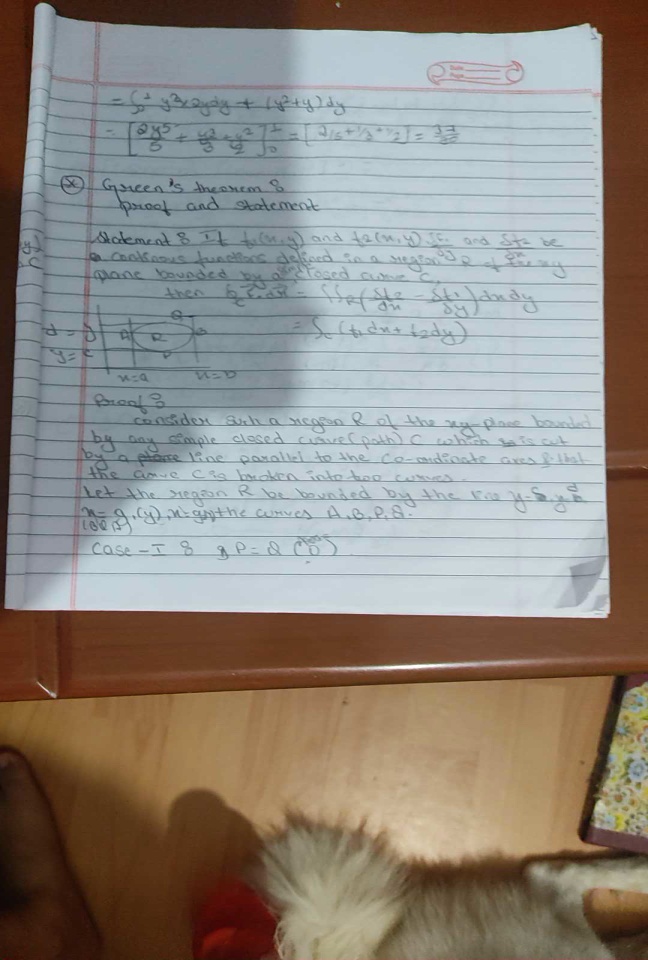 Date
Page
= ∫ y²×2y dy + (y²+y) dy
= [2y⁵/5 + y³/3 + y²/2] = [2/5 + 1/3 + 1/2] = 37/30
Green's theorem :
proof and statement
Statement : If f₁(x,y) and f₂(x,y) δf₁/δy and δf₂/δx be
a continous functions defined in a region R of the xy
plane bounded by a closed curve C,
then ∮c = ∫∫R (δf₂/δx - δf₁/δy) dx dy
= ∫c (f₁dx + f₂dy)
d = y
A R B
y = c P
x=a x=b
Proof :
consider such a region R of the xy-plane bounded
by any simple closed curve (path) C which is cut
by a line parallel to the Co-ordinate axes & that
the curve C is broken into two curves.
Let the region R be bounded by the line
the curves A, B, P, Q.
Case - I : P = Q